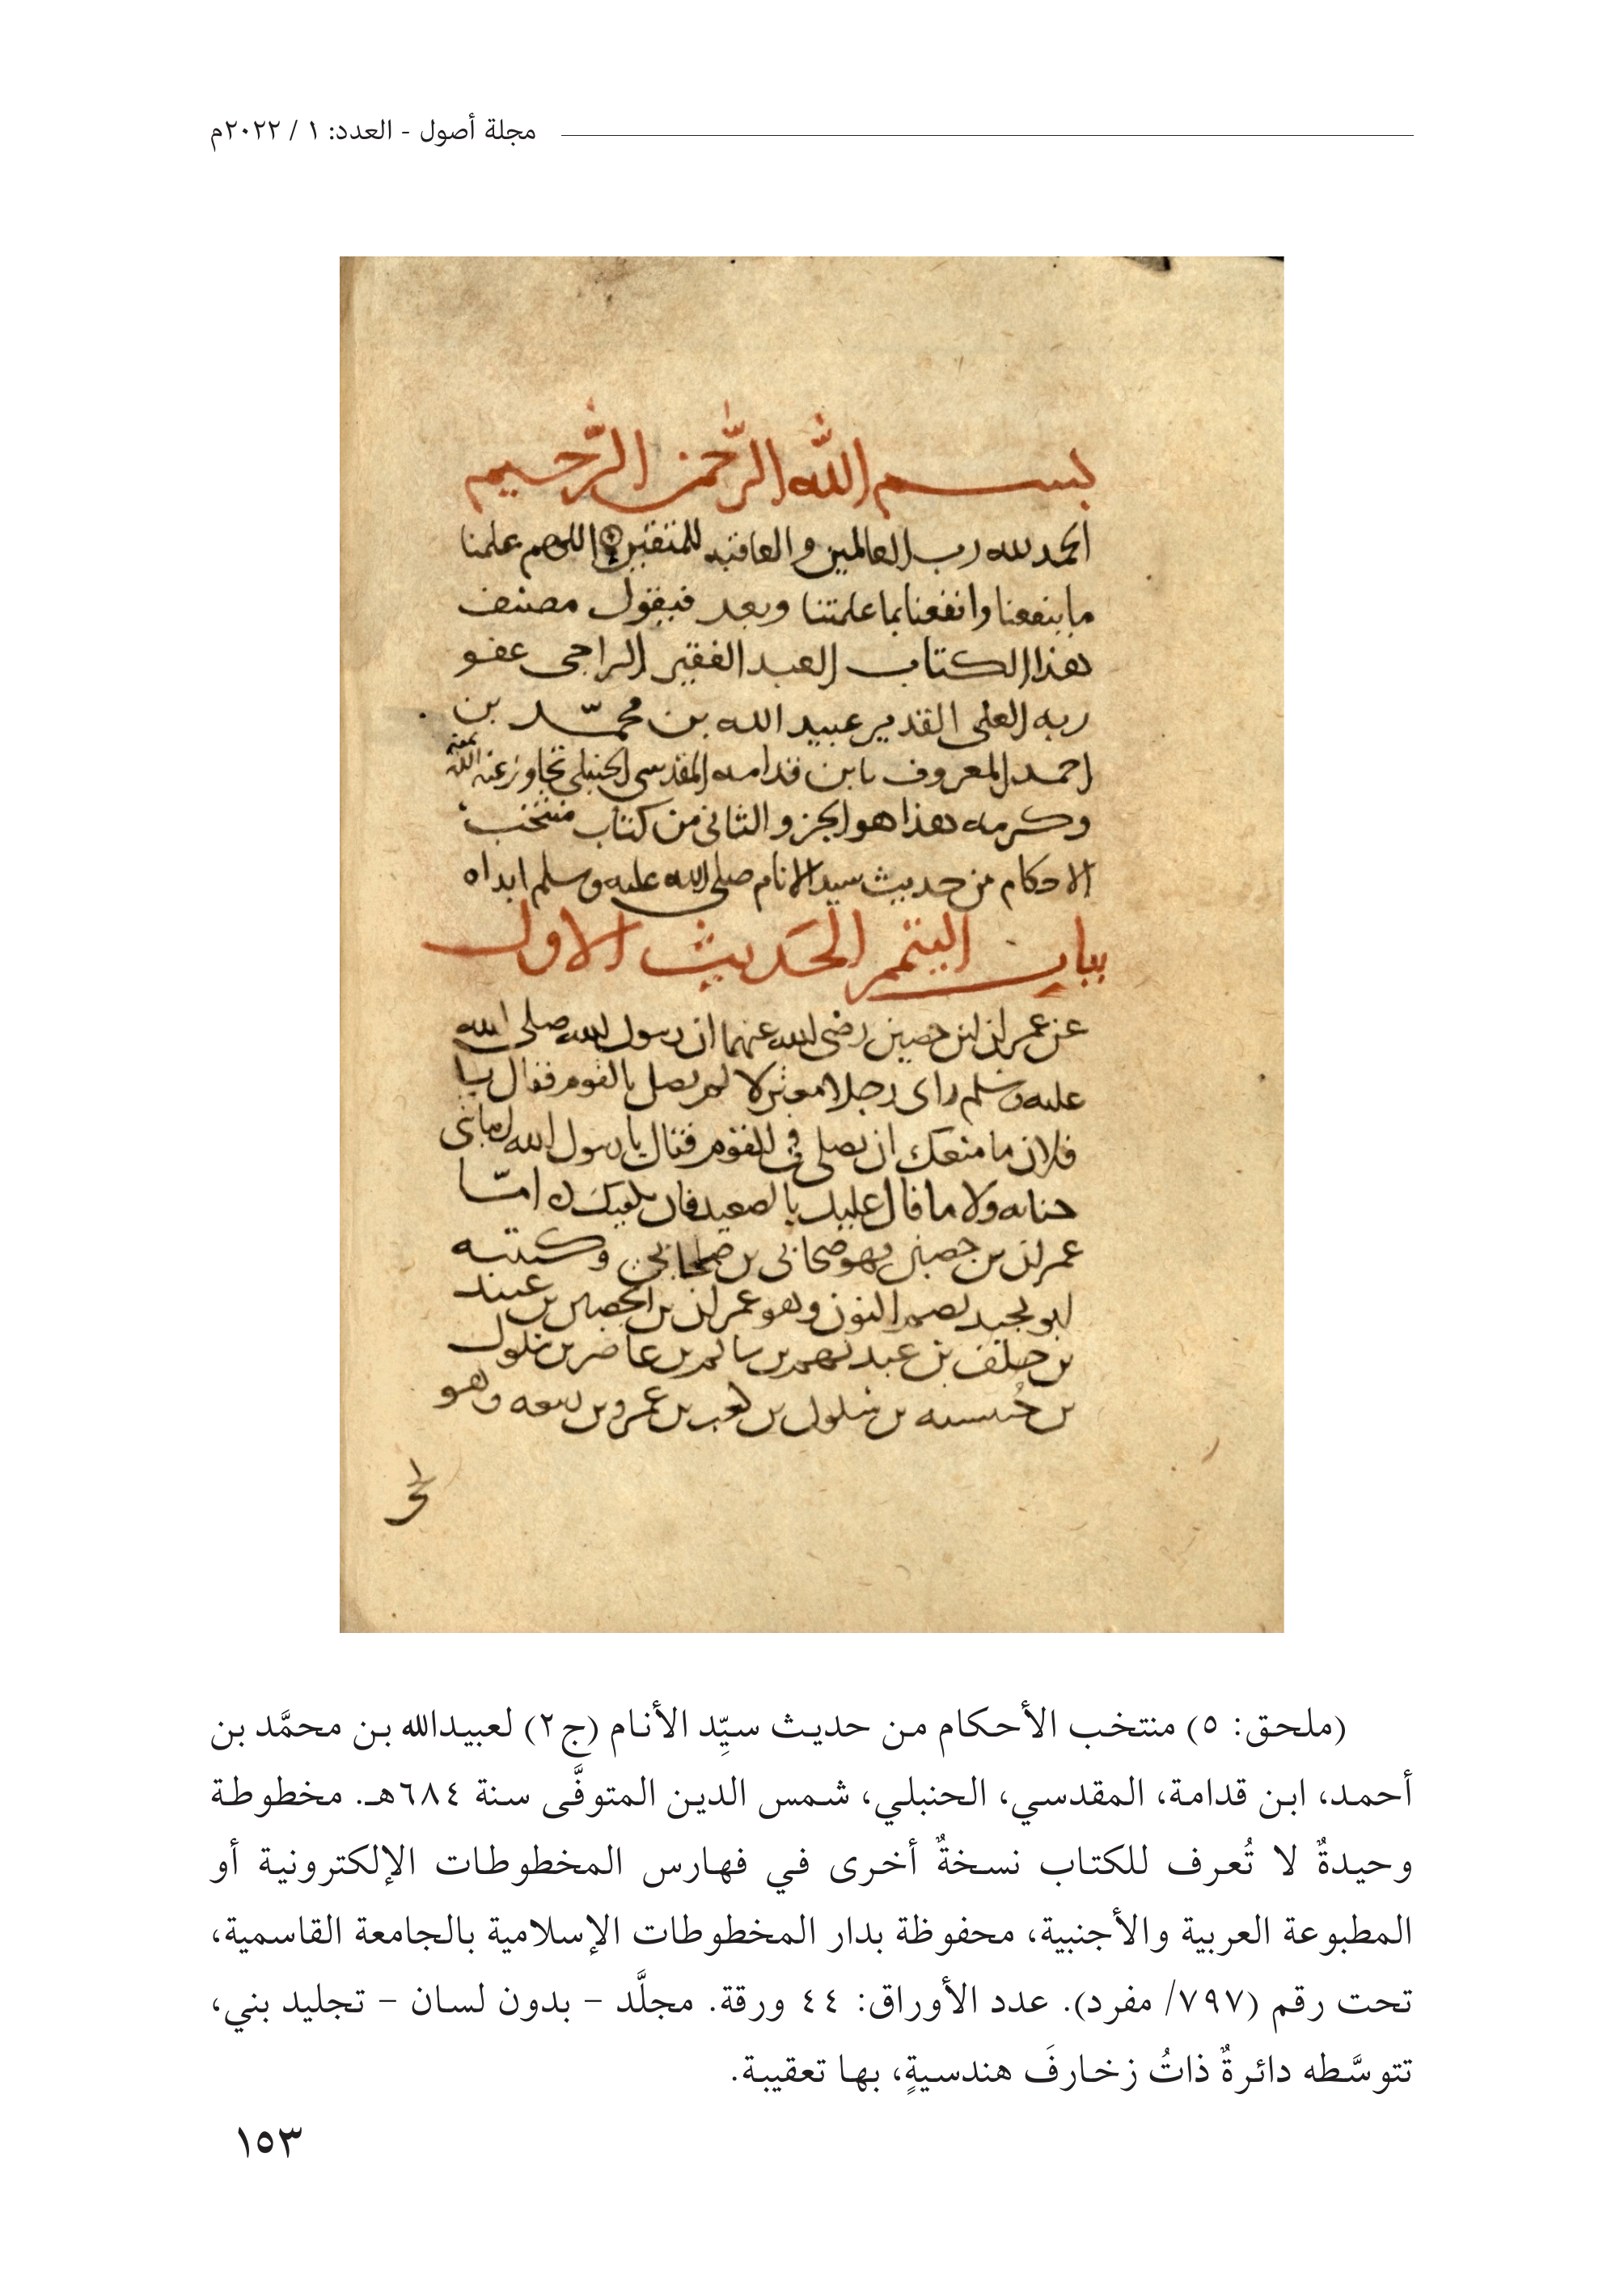 مجلة أصول - العدد: ١ / ٢٠٢٢م
بسم الله الرحمن الرحيم
الحمد لله رب العالمين والعاقبه للمتقين اللهم علمنا
ما ينفعنا وانفعنا بما علمتنا وبعد فيقول مصنف
هذا الكتاب العبد الفقير الراجى عفو
ربه العلى القدير عبيد الله بن محمّد بن
احمد المعروف بابن قدامه المقدسى الحنبلى تجاوز عنه الله بمنه
وكرمه هذا هو الجزو الثانى من كتاب منتخب
الاحكام من حديث سيد الانام صلى الله عليه وسلم ابداه
بيان التيمم الحديث الاول
عن عمران ابن حصين رضى الله عنهما ان رسول الله صلى الله
عليه وسلم راى رجلا معتزلا لم يصل بالقوم فقال يا
فلان ما منعك ان تصلى فى القوم فقال يا رسول الله اصابتنى
جنابه ولا ما قال عليك بالصعيد فان يكفيك امّا
عمران بن حصين فهو صحابى بن صحابى وكنيته
ابو نجيد بضم النون وهو عمران بن الحصين بن عبيد
بن خلف بن عبد نهم بن سالم بن غاضر بن سلول
بن حبسيه بن سلول بن كعب بن عمرو بن ربيعه وهو
(ملحق: ٥) منتخب الأحكام من حديث سيِّد الأنام (ج٢) لعبيدالله بن محمَّد بن
أحمد، ابن قدامة، المقدسي، الحنبلي، شمس الدين المتوفَّى سنة ٦٨٤هـ. مخطوطة
وحيدةٌ لا تُعرف للكتاب نسخةٌ أخرى في فهارس المخطوطات الإلكترونية أو
المطبوعة العربية والأجنبية، محفوظة بدار المخطوطات الإسلامية بالجامعة القاسمية،
تحت رقم (٧٩٧/ مفرد). عدد الأوراق: ٤٤ ورقة. مجلَّد – بدون لسان – تجليد بني،
تتوسَّطه دائرةٌ ذاتُ زخارفَ هندسيةٍ، بها تعقيبة.
١٥٣